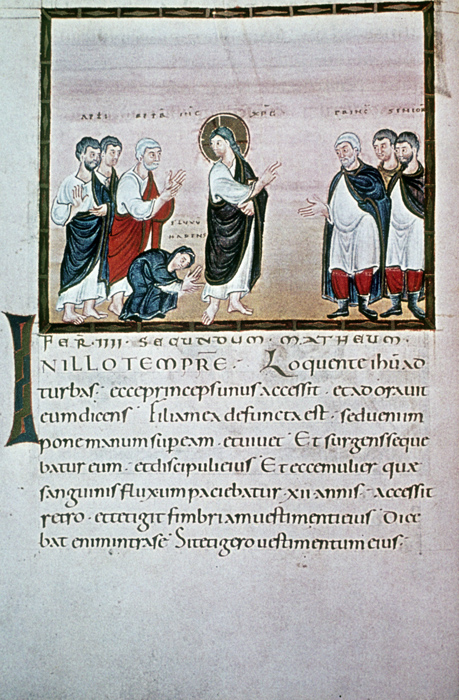 APLI PETR IHC XPC PRINC SENIOR
FLUXU
HABENS
FER· IIII· SEQUNDUM· MATHEUM·
IN ILLO TEMPRE· Loquente ihu ad
turbas· ecce princeps unus accessit· et adoravit
eum dicens· Filia mea defuncta est· sed veni im
pone manum super eam· et vivet· Et surgens seque
batur eum· et discipuli eius· Et ecce mulier quae
sanguinis fluxum paciebatur xii annis· accessit
retro· et tetigit fimbriam vestimenti eius· Dice
bat enim intra se· Si tetigero vestimentum eius·